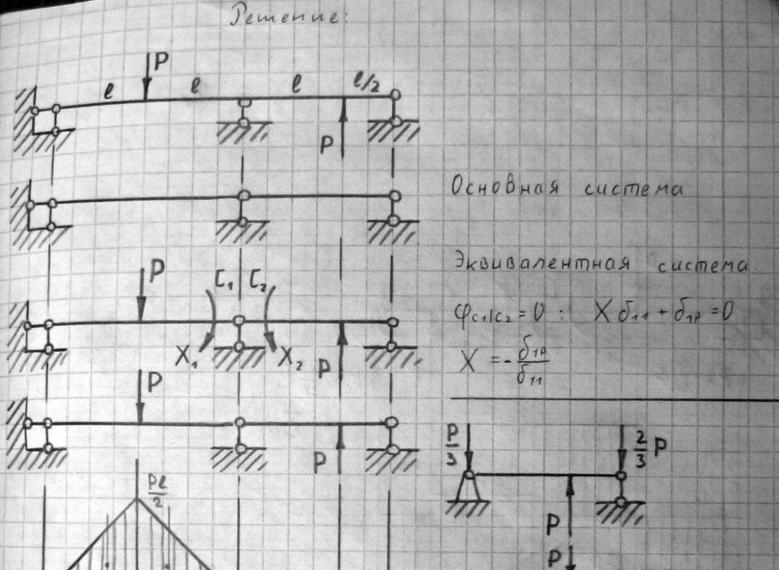 Решение:
P
l l l l/2
P
Основная система
Эквивалентная система
P C₁ C₂
φc₁c₂ = 0 : X δ₁₁ + δ₁p = 0
X₁ X₂ P
X = - δ₁p / δ₁₁
P
P
P/3 2/3 P
Pl/2
P
P